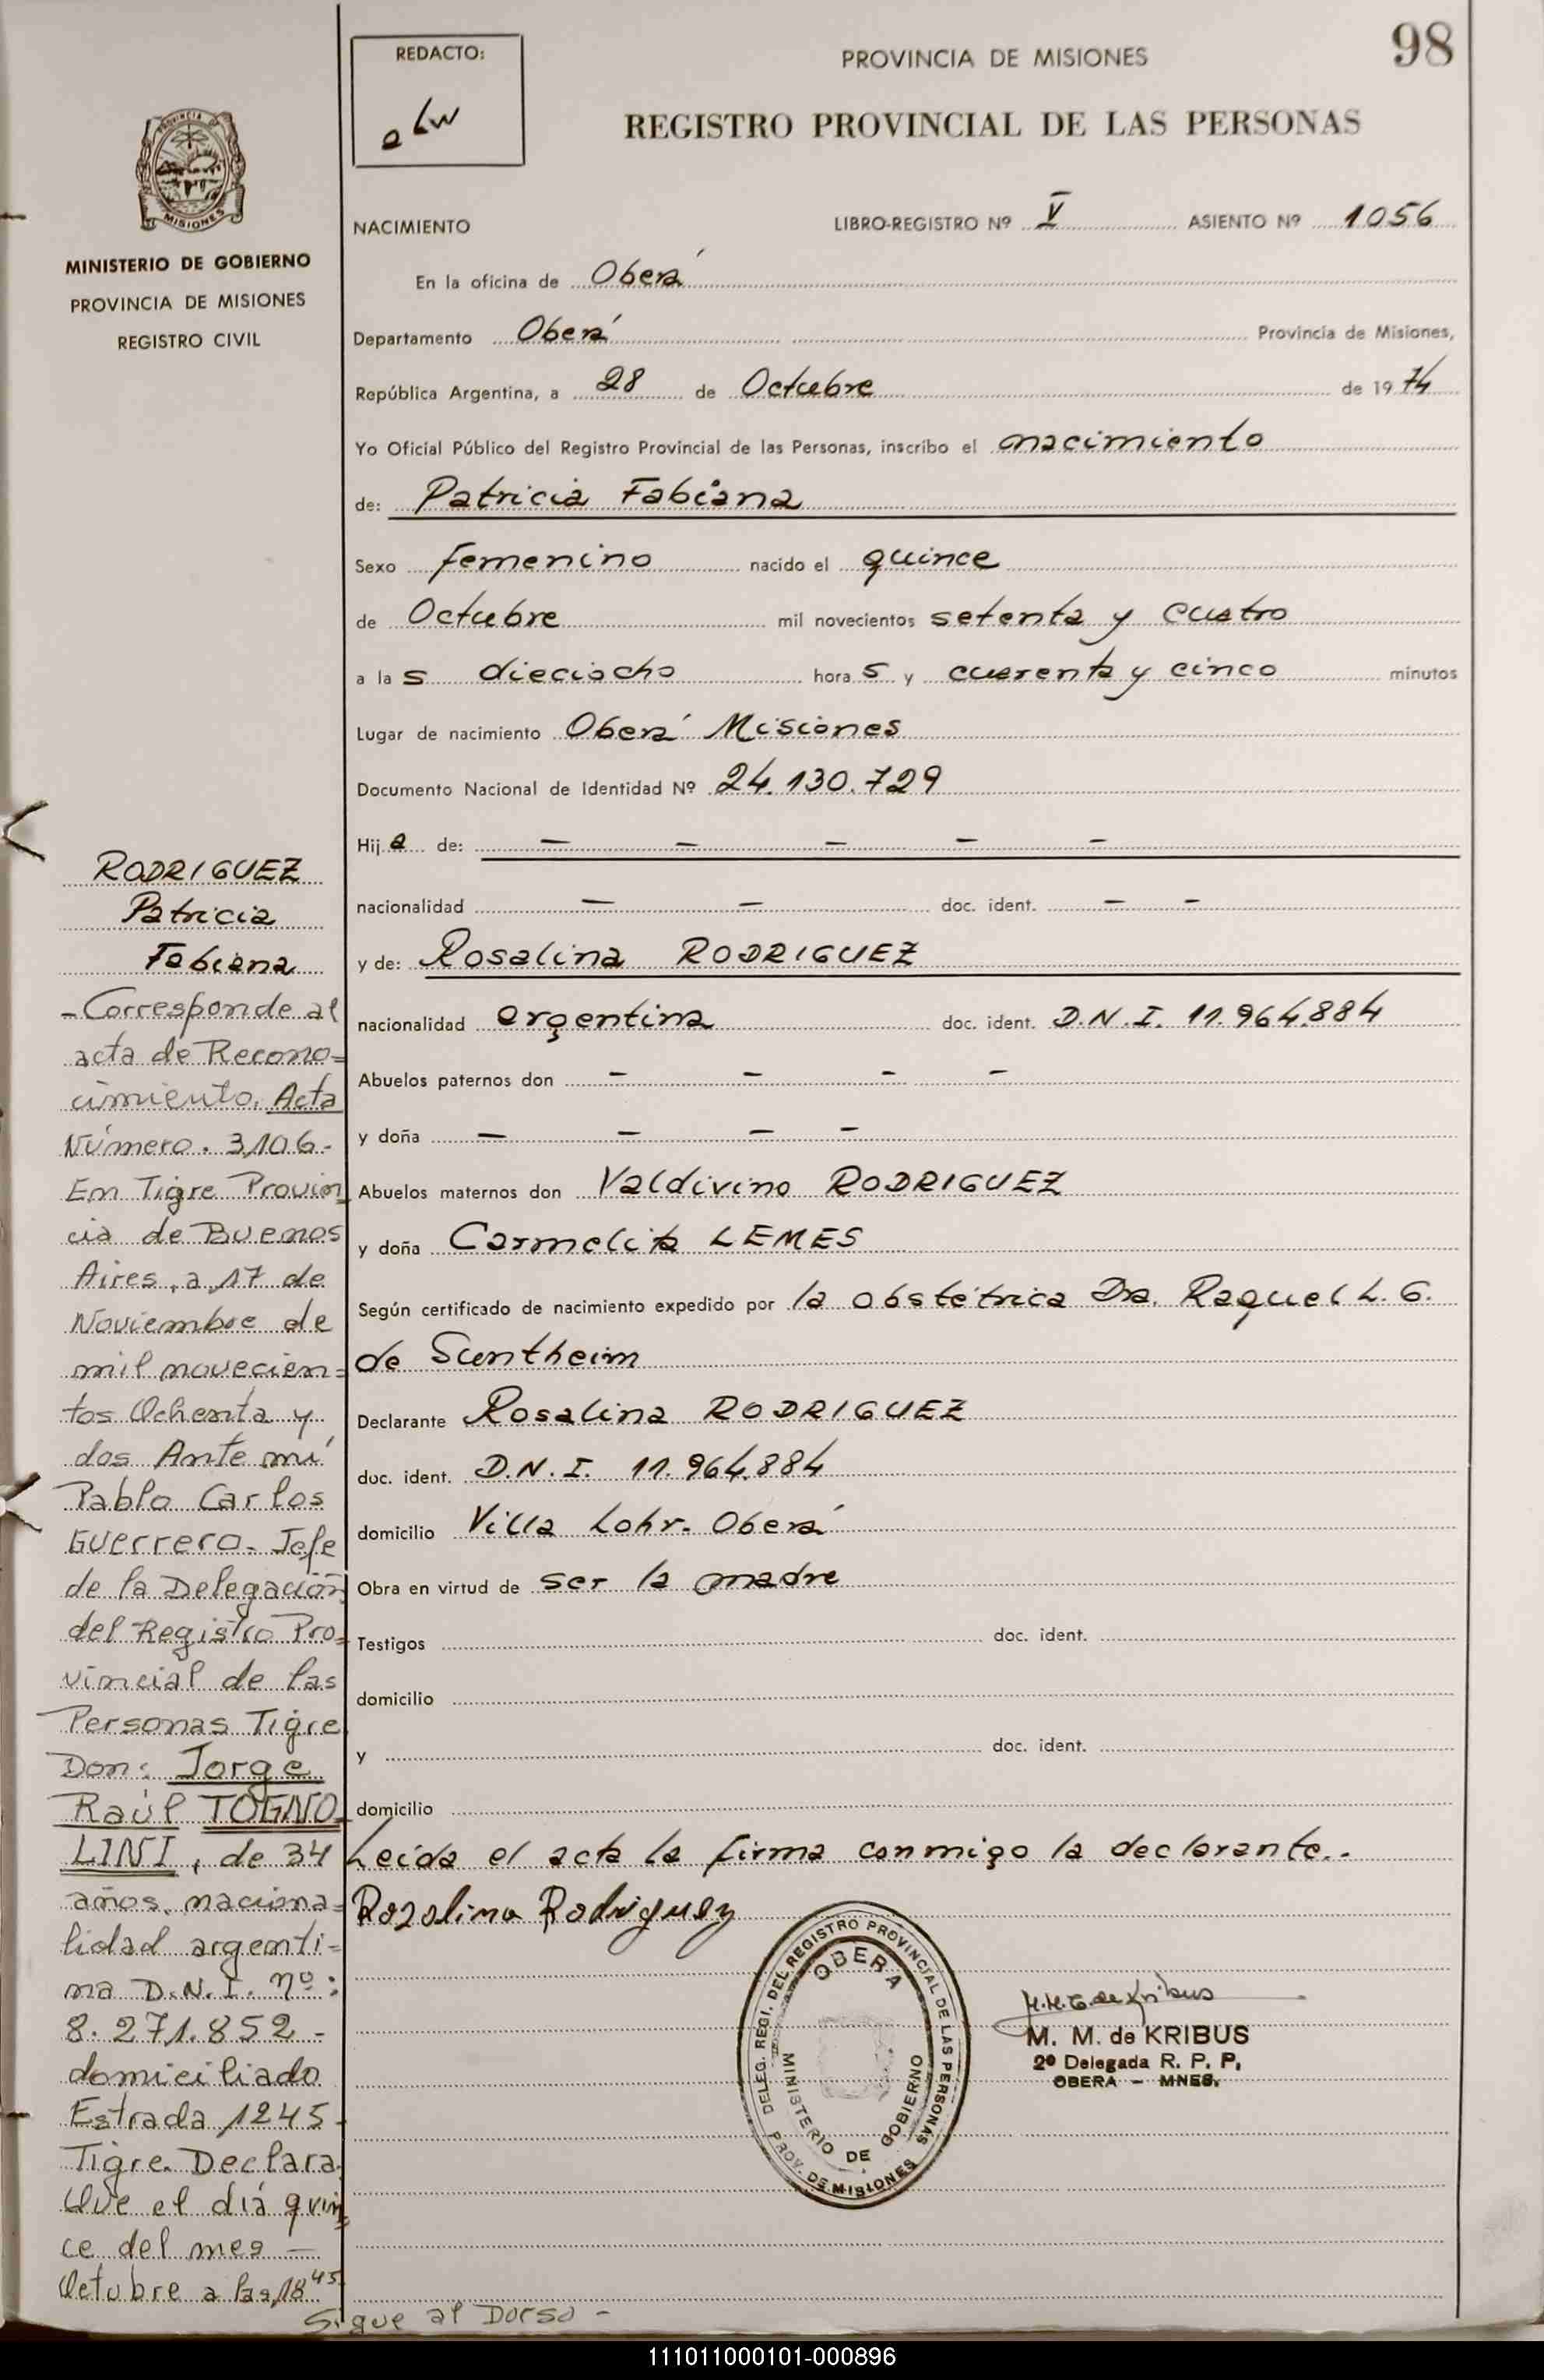 98
REDACTO:
PROVINCIA DE MISIONES
REGISTRO PROVINCIAL DE LAS PERSONAS
PROVINCIA DE
MISIONES
MINISTERIO DE GOBIERNO
PROVINCIA DE MISIONES
REGISTRO CIVIL
NACIMIENTO LIBRO-REGISTRO Nº V ASIENTO Nº 1056
En la oficina de Oberá
Departamento Oberá Provincia de Misiones,
República Argentina, a 28 de Octubre de 1974
Yo Oficial Público del Registro Provincial de las Personas, inscribo el nacimiento
de: Patricia Fabiana
Sexo femenino nacido el quince
de Octubre mil novecientos setenta y cuatro
a las dieciocho horas y cuarenta y cinco minutos
Lugar de nacimiento Oberá Misiones
Documento Nacional de Identidad Nº 24.130.729
Hija de: — — — — —
nacionalidad — — doc. ident. — —
y de: Rosalina RODRIGUEZ
nacionalidad argentina doc. ident. D.N.I. 11.964.884
Abuelos paternos don — — — —
y doña — — — —
Abuelos maternos don Valdivino RODRIGUEZ
y doña Carmelita LEMES
Según certificado de nacimiento expedido por la obstétrica Dra. Raquel L. G.
de Suntheim
Declarante Rosalina RODRIGUEZ
doc. ident. D.N.I. 11.964.884
domicilio Villa Lohr - Oberá
Obra en virtud de ser la madre
Testigos doc. ident.
domicilio
y doc. ident.
domicilio
Leída el acta la firma conmigo la declarante..
Rozalina Rodriguez
DELEG. REGI. DEL REGISTRO PROVINCIAL DE LAS PERSONAS
OBERA
MINISTERIO DE GOBIERNO
PROV. DE MISIONES
M. M. de KRIBUS
2º Delegada R. P. P.
OBERA - MNES.
RODRIGUEZ
Patricia
Fabiana
- Corresponde al
acta de Recono=
cimiento. Acta
Número. 3106-
En Tigre Provin
cia de Buenos
Aires, a 17 de
Noviembre de
mil novecien=
tos Ochenta y
dos Ante mí
Pablo Carlos
Guerrero. Jefe
de la Delegación
del Registro Pro=
vincial de las
Personas Tigre
Don: Jorge
Raúl TOGNO
LINI, de 34
años, naciona=
lidad argenti=
na D.N.I. nº:
8.271.852-
domiciliado
Estrada 1245-
Tigre. Declara
Que el día quin=
ce del mes —
Octubre a las 18 45
Sigue al Dorso -
111011000101-000896